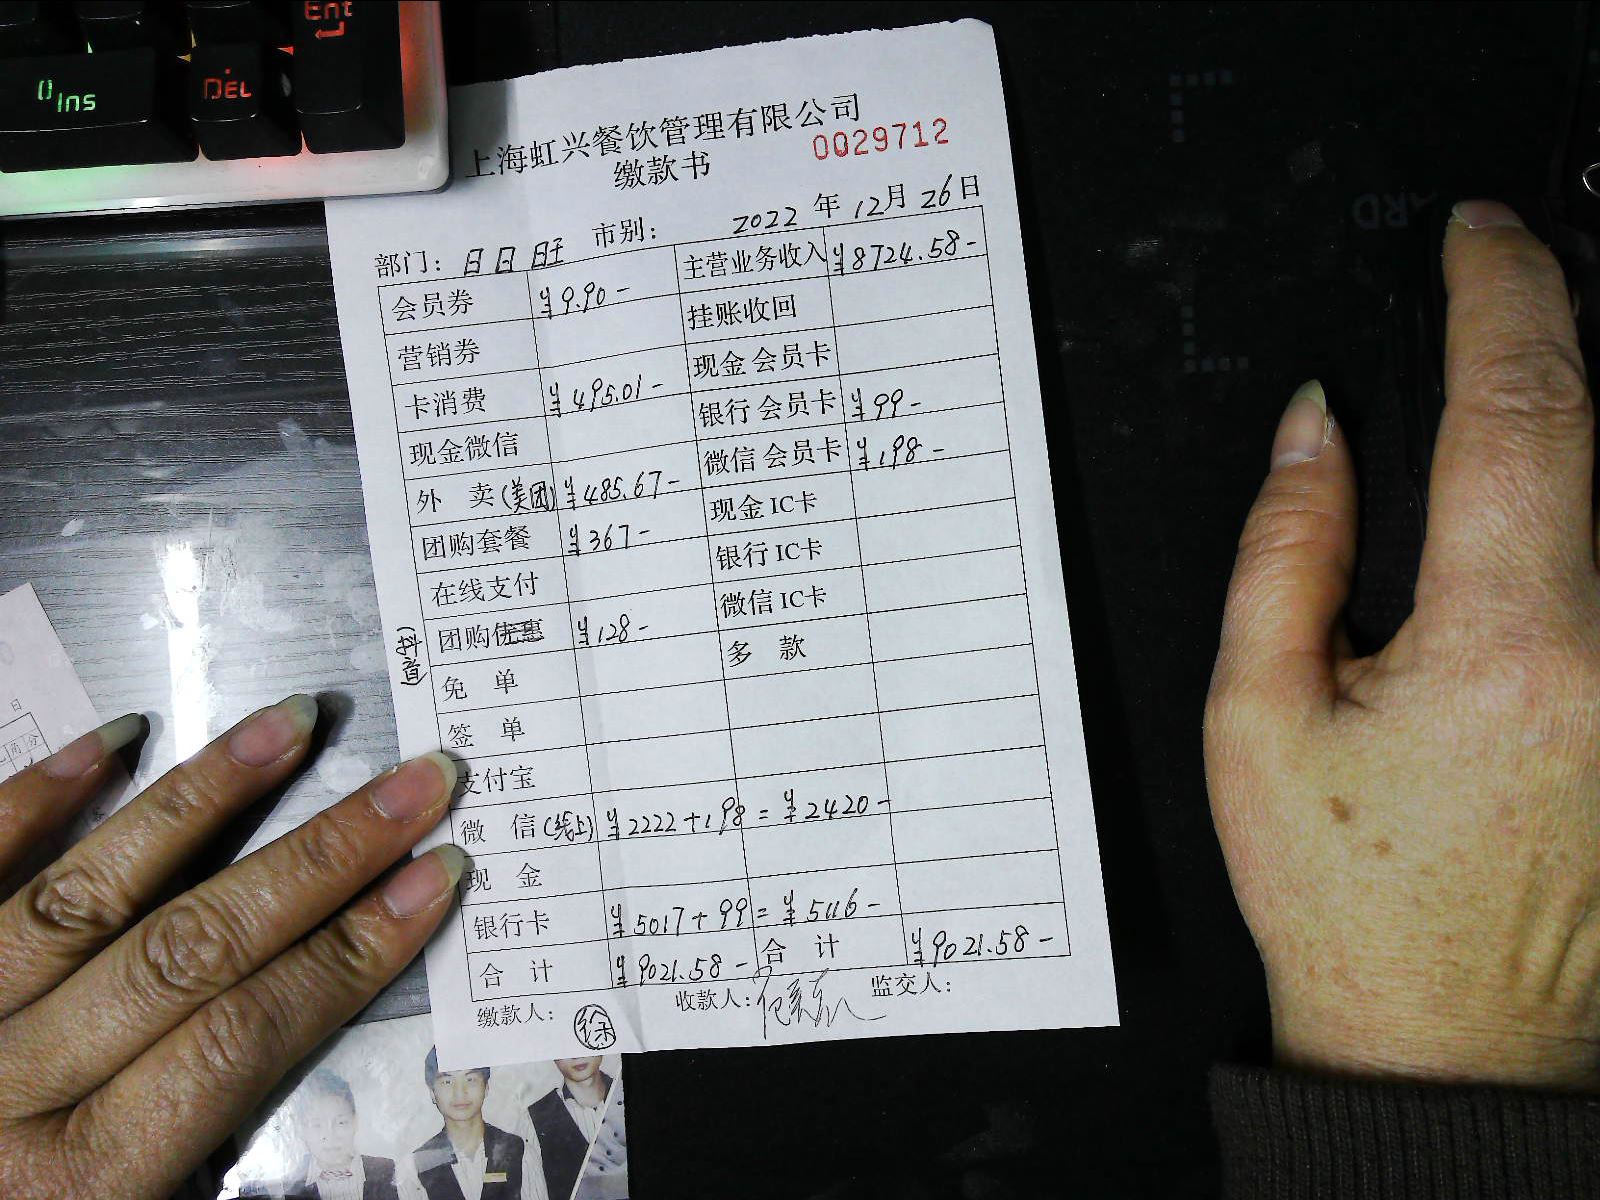 Ent
0 Ins
DEL
上海虹兴餐饮管理有限公司
缴款书
0029712
部门: 日日旺 市别: 2022 年 12 月 26 日
会员券 ¥9.90- 主营业务收入 ¥8724.58-
营销券 挂账收回
卡消费 ¥495.01- 现金 会员卡
现金微信 银行 会员卡 ¥99-
外 卖(美团) ¥485.67- 微信 会员卡 ¥198-
团购套餐 ¥367- 现金 IC卡
在线支付 银行 IC卡
团购优惠 ¥128- 微信 IC卡
(抖音)
免 单 多 款
签 单
支付宝
微 信(线上) ¥2222+198 = ¥2420-
现 金
银行卡 ¥5017+99 = ¥5116-
合 计 ¥9021.58- 合 计 ¥9021.58-
缴款人: 徐 收款人: 监交人:
日
角 分